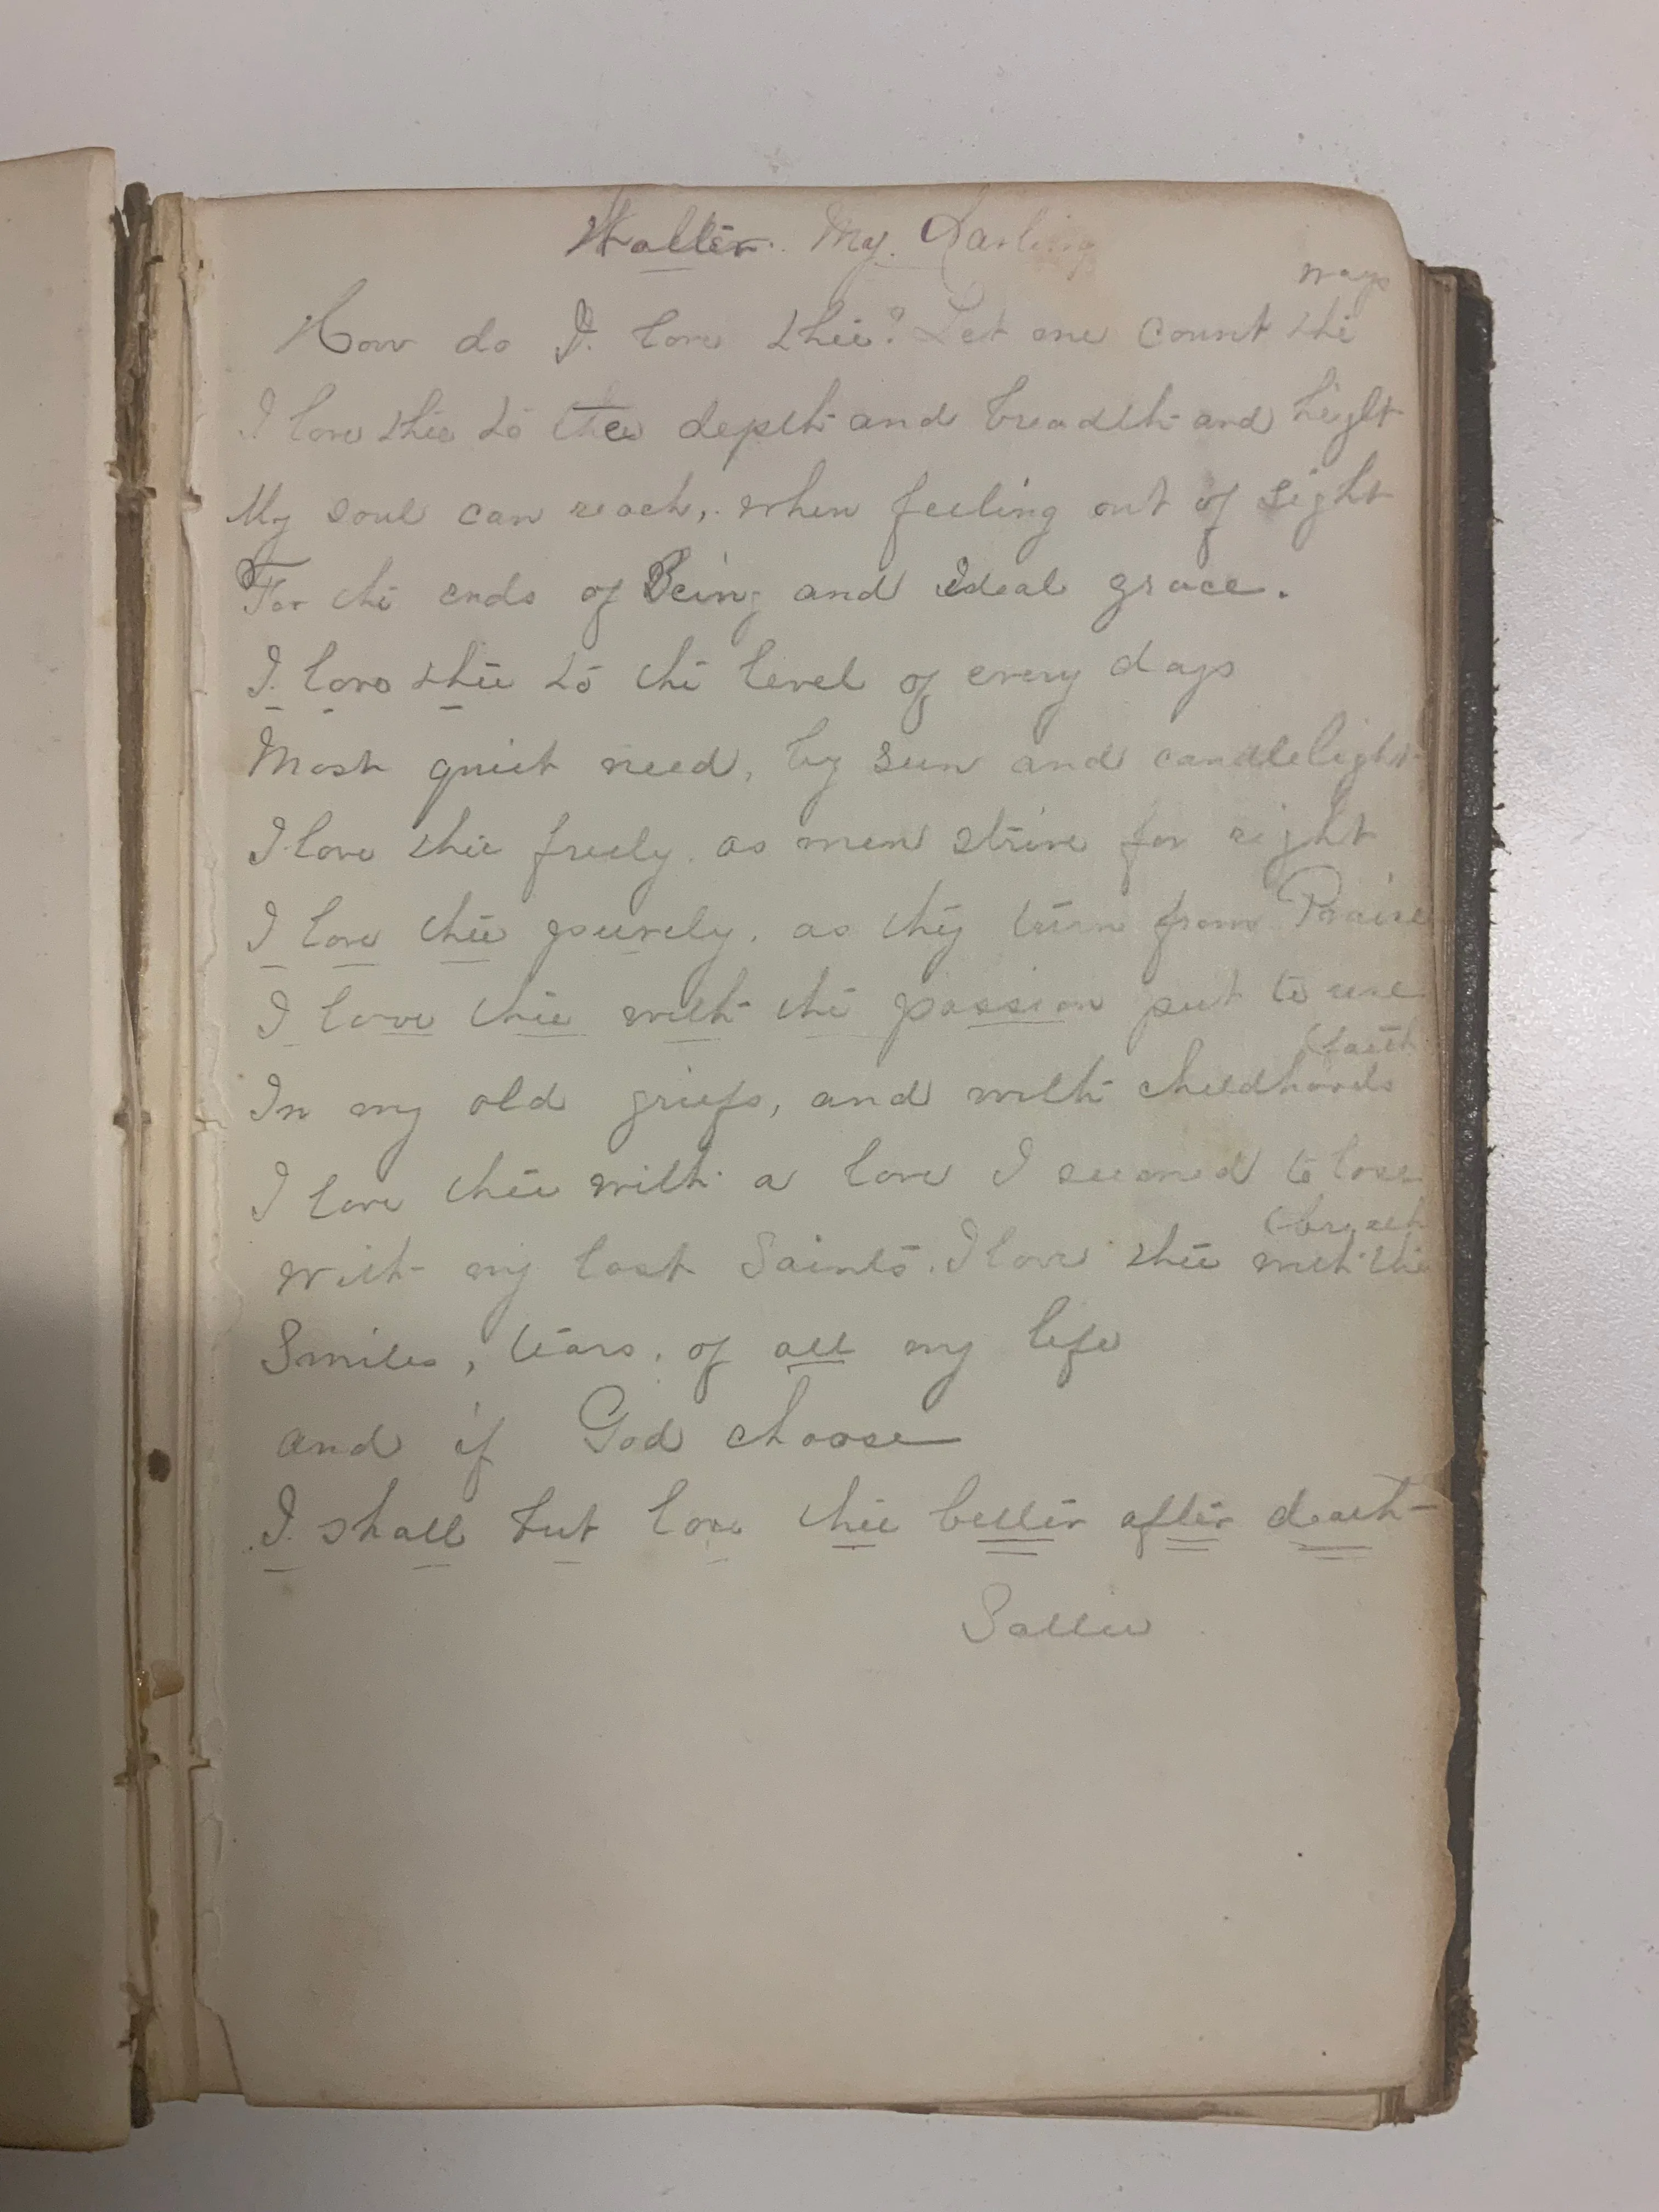 Walter. My. Darling
ways
How do I. love thee? Let me count the
I love thee to the depth and breadth and hight
My soul can reach, when feeling out of sight
For the ends of Being and ideal grace.
I. love thee to the level of every days
Most quiet need, by sun and candlelight
I love thee freely. as men strive for right
I love thee purely. as they turn from Praise
I love thee with the passion put to use
(faith
In my old griefs, and with childhoods
I love thee with a love I seemed to lose
(breath
with my lost Saints. I love thee with the
Smiles, tears, of all my life
and if God choose
I. shall but love thee better after death
Sallie